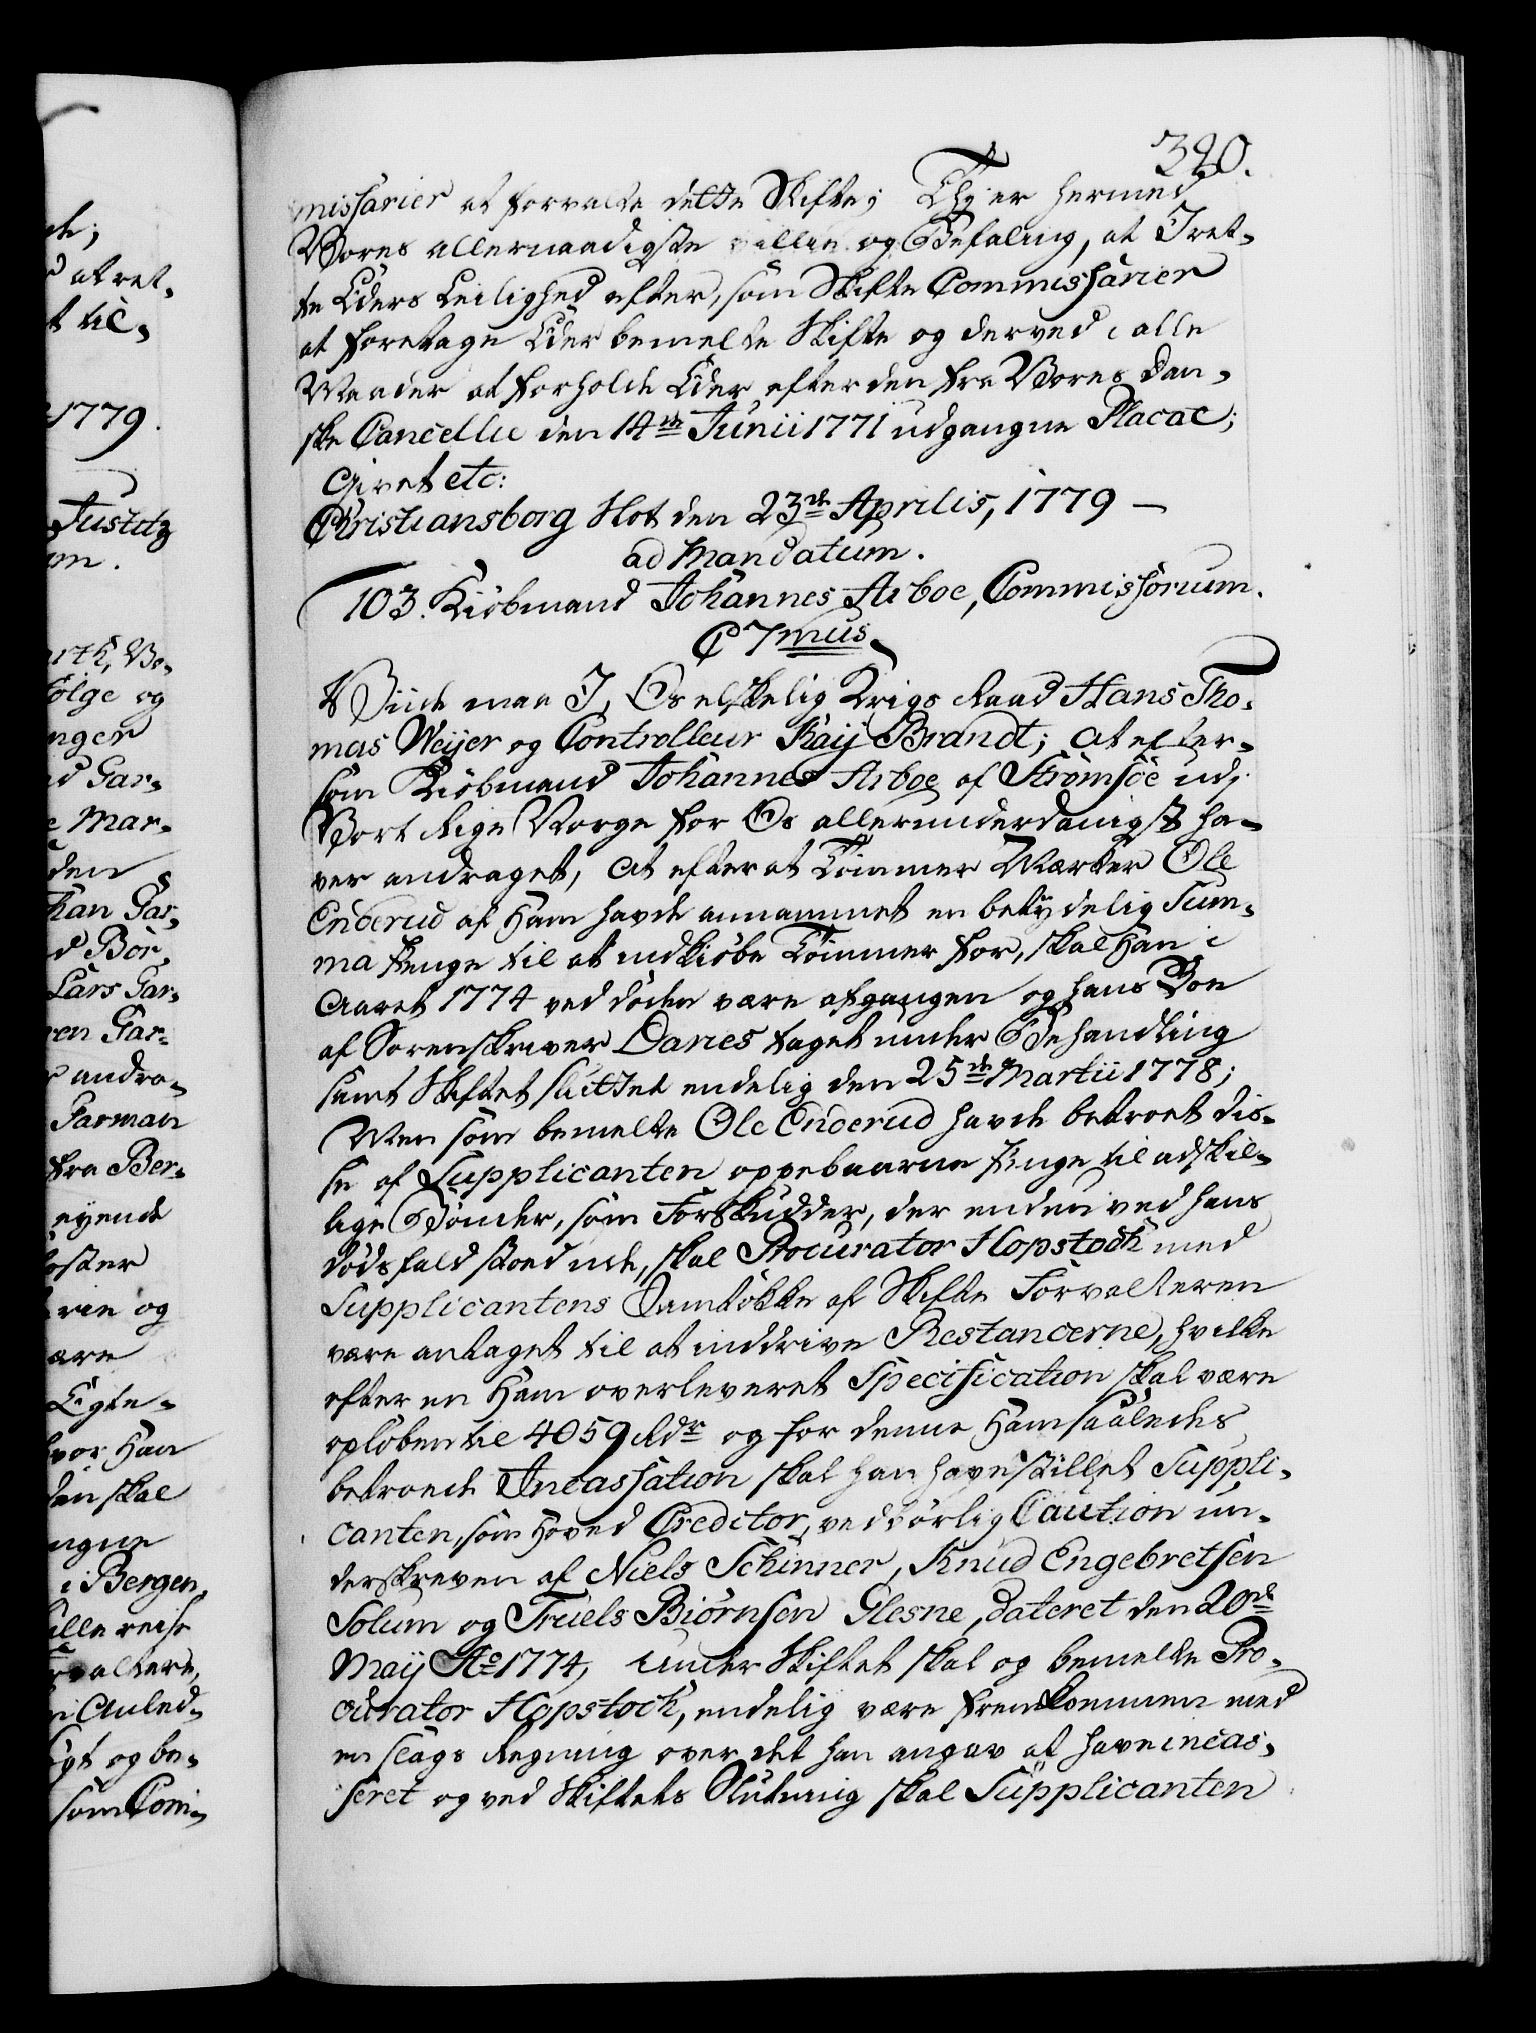 320.
missarier at forvalte dette Skifte; Thi er hermed
Vores allernaadigste villie og Befaling, at I ret-
te Eders Leilighed efter, som Skifte Commissarier
at foretage Eder bemelte Skifte og derved i alle
Maader at forholde Eder efter den fra Vores Dan-
ske Cancellie den 14de Junii 1771 udgangne Placat;
Givet etc:
Christiansborg Slot den 23de Aprilis, 1779 —
ad Mandatum.
103. Kiöbmand Johannes Arboe, Commissorium.
C 7mus
Viide maa I, Os elskelig Krigs Raad Hans Tho-
mas Weijer og Controlleur Kaij Brandt; at efter-
som Kiöbmand Johannes Arboe af Strömsöe udj
Vort Rige Norge for Os allerunderdanigst ha-
ver andraget, at efter at Tömmer Mærker Ole
Enderud af Ham havde annammet en betydelig Sum-
ma Penge til at indkiöbe Tömmer for, skal Han i
Aaret 1774 ved döden være afgangen og hans Boe
af Sorenskriver Danes taget under Behandling
samt Skiftet sluttet endelig den 25de Martii 1778;
Men som bemelte Ole Enderud havde betroet dis-
se af Supplicanten oppebaarne Penge til adskil-
lige Bönder, som Forskudder, der endnu ved hans
dödsfald stoed ude, skal Procurator Hopstock med
Supplicantens Samtökke af Skifte Forvalteren
være antaget til at inddrive Restancerne, hvilke
efter en Ham overleveret Specification skal være
oplöben til 4059 Rdr og for denne Ham saaledes
betroede Incassation skal han have stillet Suppli-
canten, som Hoved Creditor, vedbörlig Caution un-
derskreven af Niels Schinner, Knud Engebretsen
Solum og Truels Biörnsen Glesne, dateret den 20de
Maij Ao 1774, under Skiftet skal og bemelte Pro-
curator Hopstock, endelig være fremkommen med
en slags Regning over det han angav at have incas-
seret og ved Skiftets Slutning skal Supplicanten